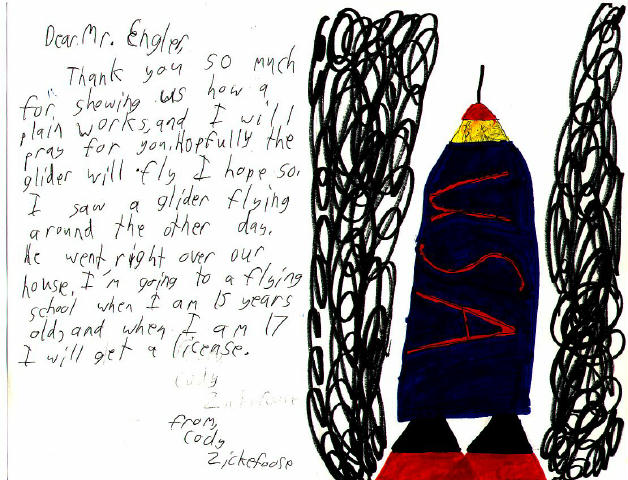 Dear Mr. Engler,
Thank you so much
for showing us how a
plain works, and I will
pray for you. Hopfully the
glider will fly I hope so.
I saw a glider flying
around the other day.
He went right over our
house, I'm going to a flying
school when I am 15 years
old, and when I am 17
I will get a license.
Cody
Zickefoose
from,
Cody
Zickefoose
USA